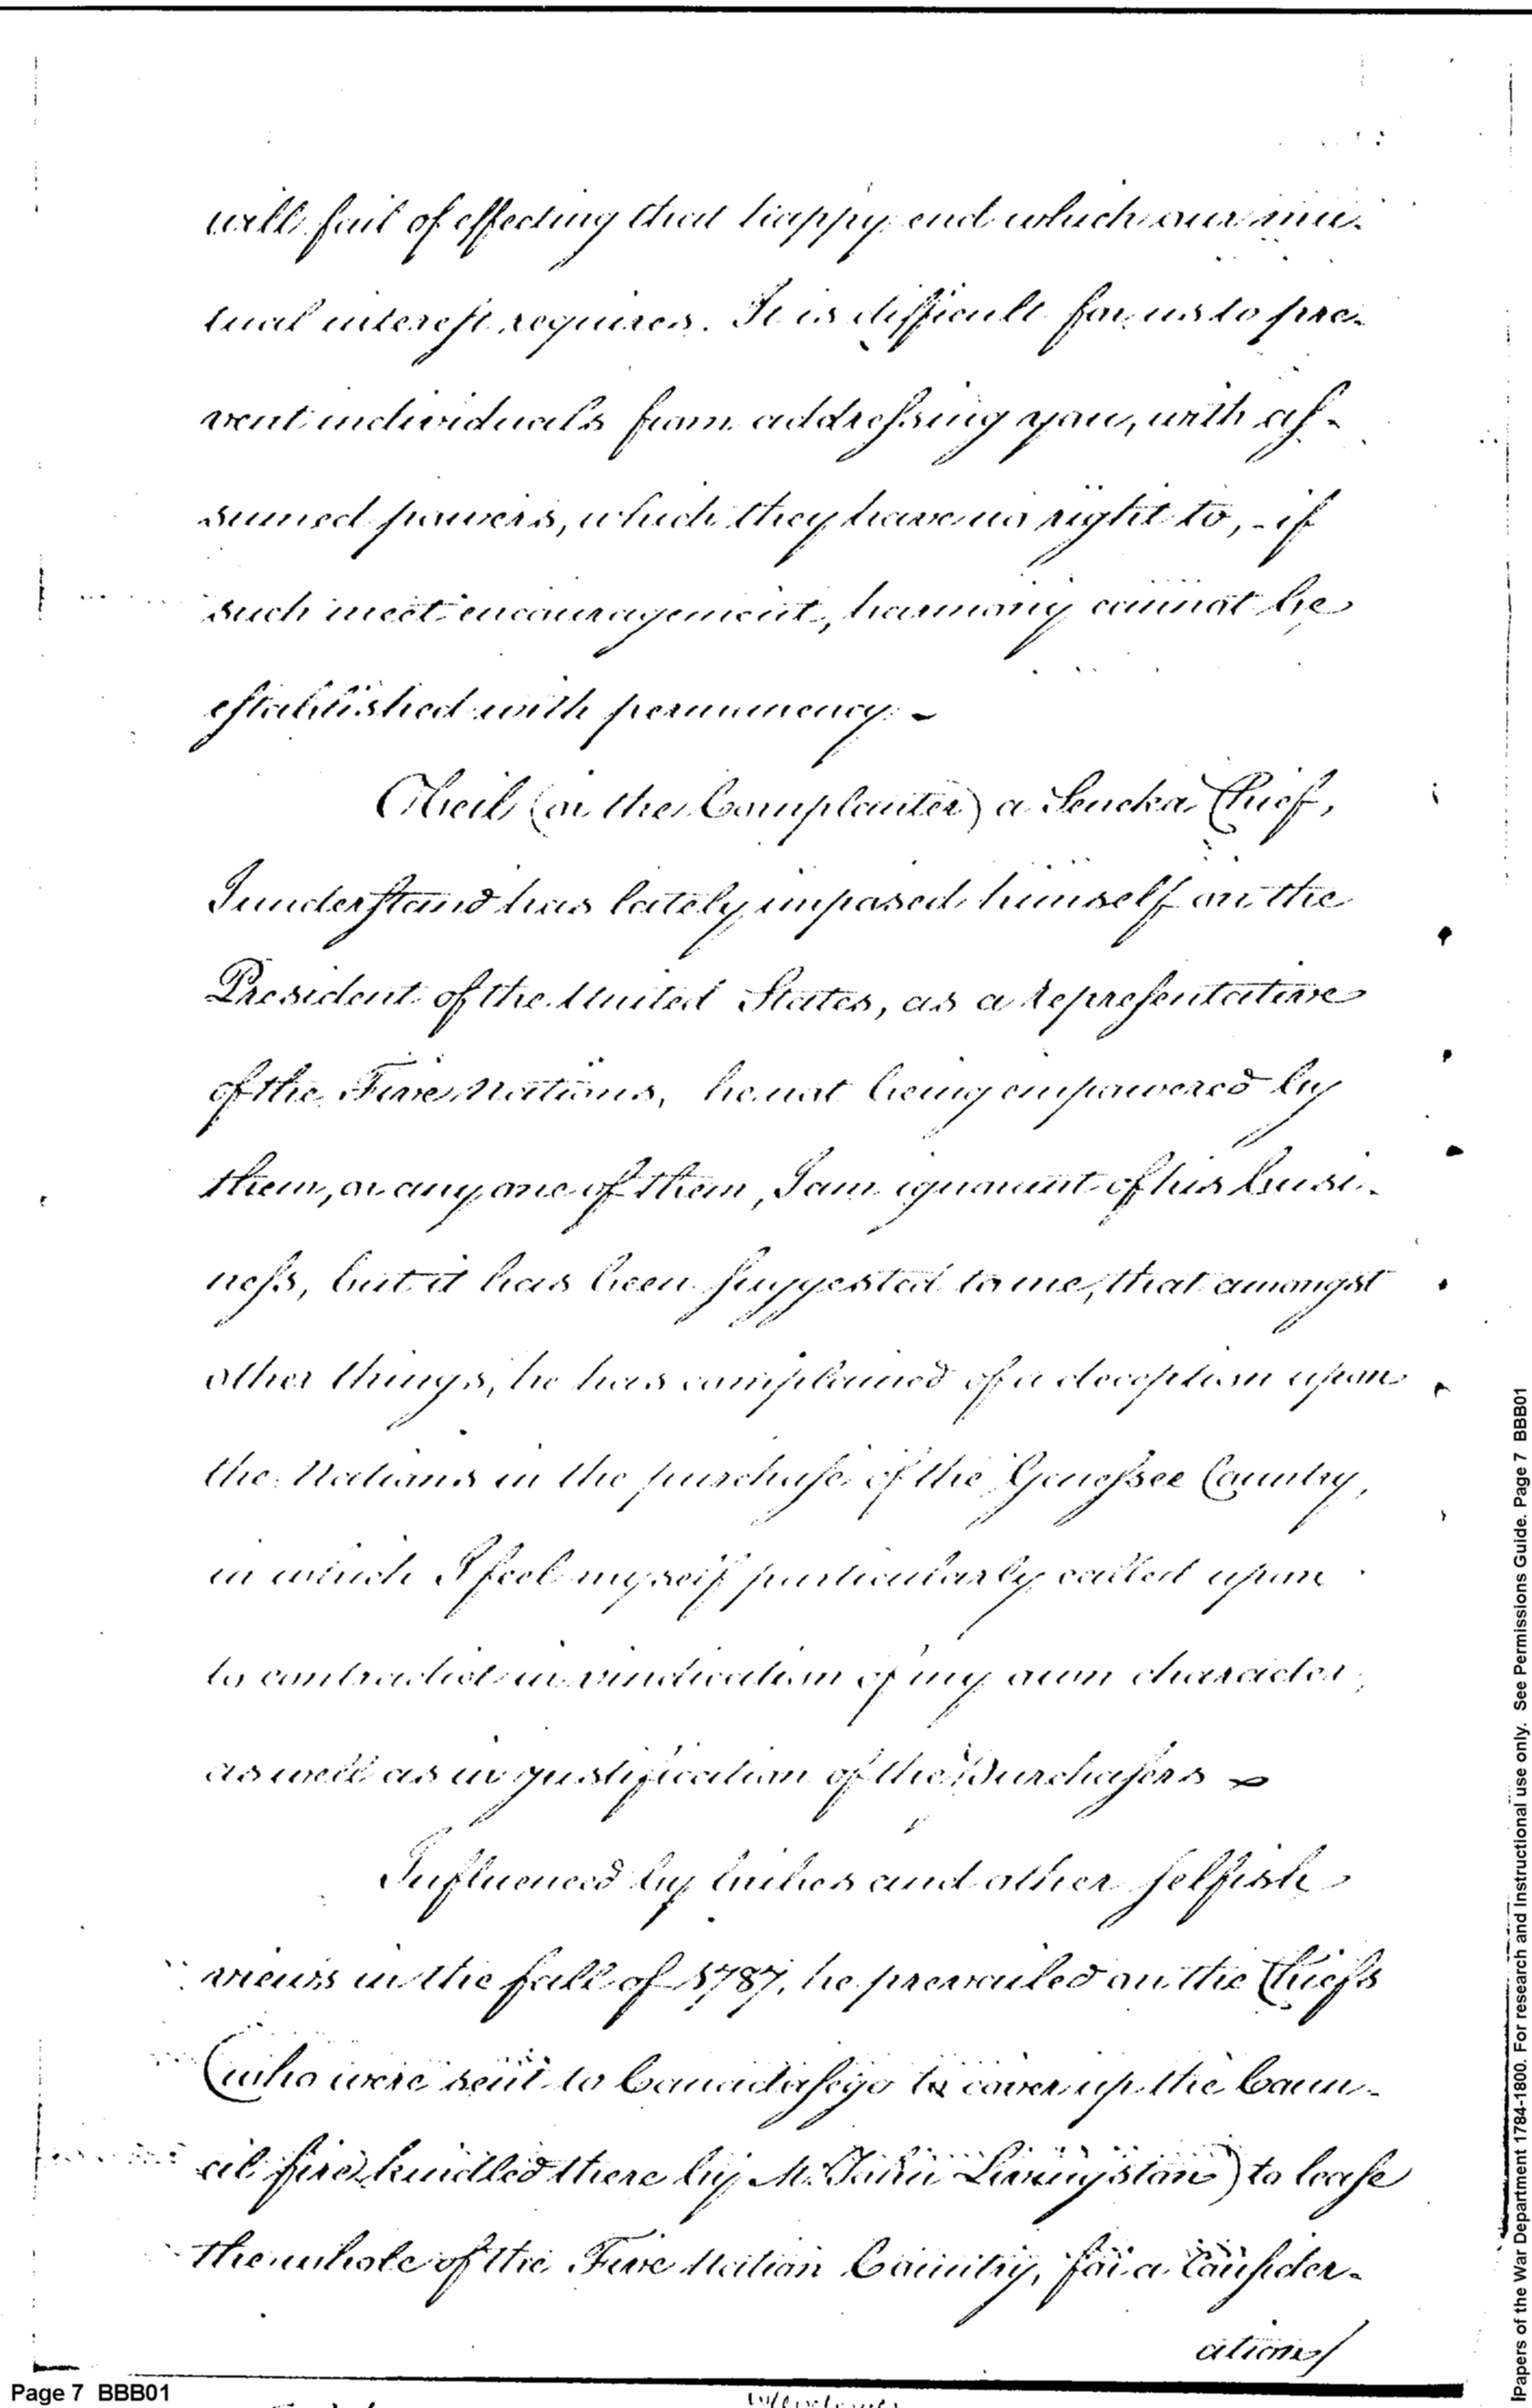 will fail of effecting that happy end which our mu-
tual interest requires. It is difficult for us to pre-
vent individuals from addressing you, with as-
sumed powers, which they have no right to, - if
such meet encouragement, harmony cannot be
established with permanency -
Obeil (or the Cornplanter) a Seneka Chief,
I understand has lately imposed himself on the
President of the United States, as a representative
of the Five Nations, he not being empowered by
them, or any one of them, I am ignorant of his busi-
ness, but it has been suggested to me, that amongst
other things, he has complained of a deception upon
the Nations in the purchase of the Genessee Country,
in which I feel myself particularly called upon
to contradict in vindication of my own character,
as well as in justification of the Purchasers -
Influenced by bribes and other selfish
views in the fall of 1787, he prevailed on the Chiefs
(who were sent to Canadasego to cover up the Coun-
cil fire kindled there by Mr. John Livingston) to lease
the whole of the Five Nation Country, for a Consider-
ation/
Page 7 BBB01
[Papers of the War Department 1784-1800. For research and Instructional use only. See Permissions Guide. Page 7 BBB01